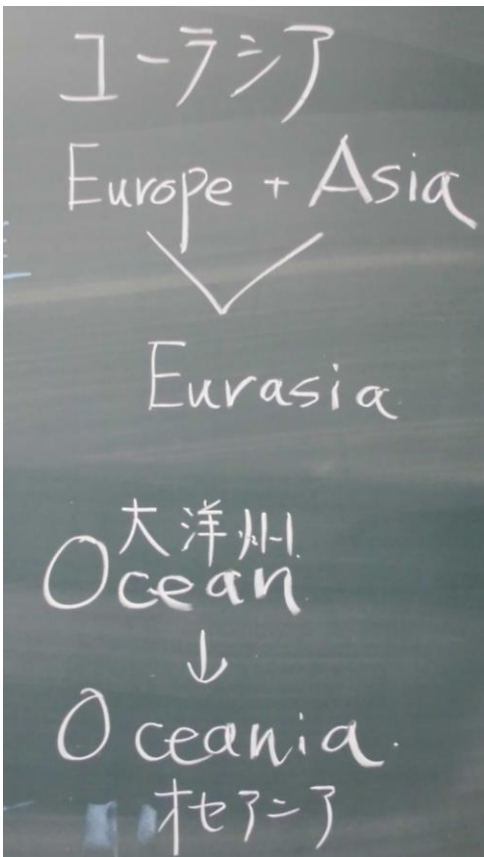 ユーラシア
Europe + Asia
Eurasia
大洋州
Ocean
↓
Oceania
オセアニア